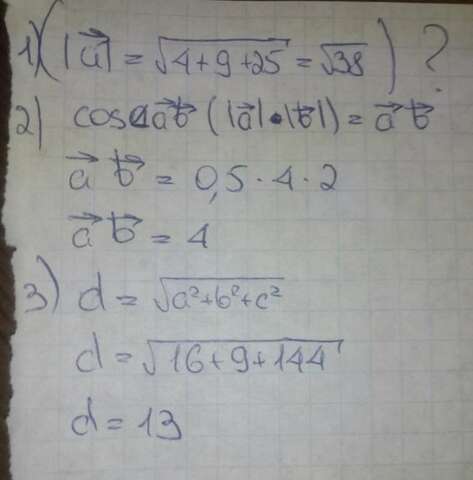 1) (|a⃗| = √4+9+25 = √38) ?
2) cos∠a⃗b⃗ (|a⃗|•|b⃗|) = a⃗ b⃗
a⃗ b⃗ = 0,5 · 4 · 2
a⃗ b⃗ = 4
3) d = √a²+b²+c²
d = √16+9+144
d = 13